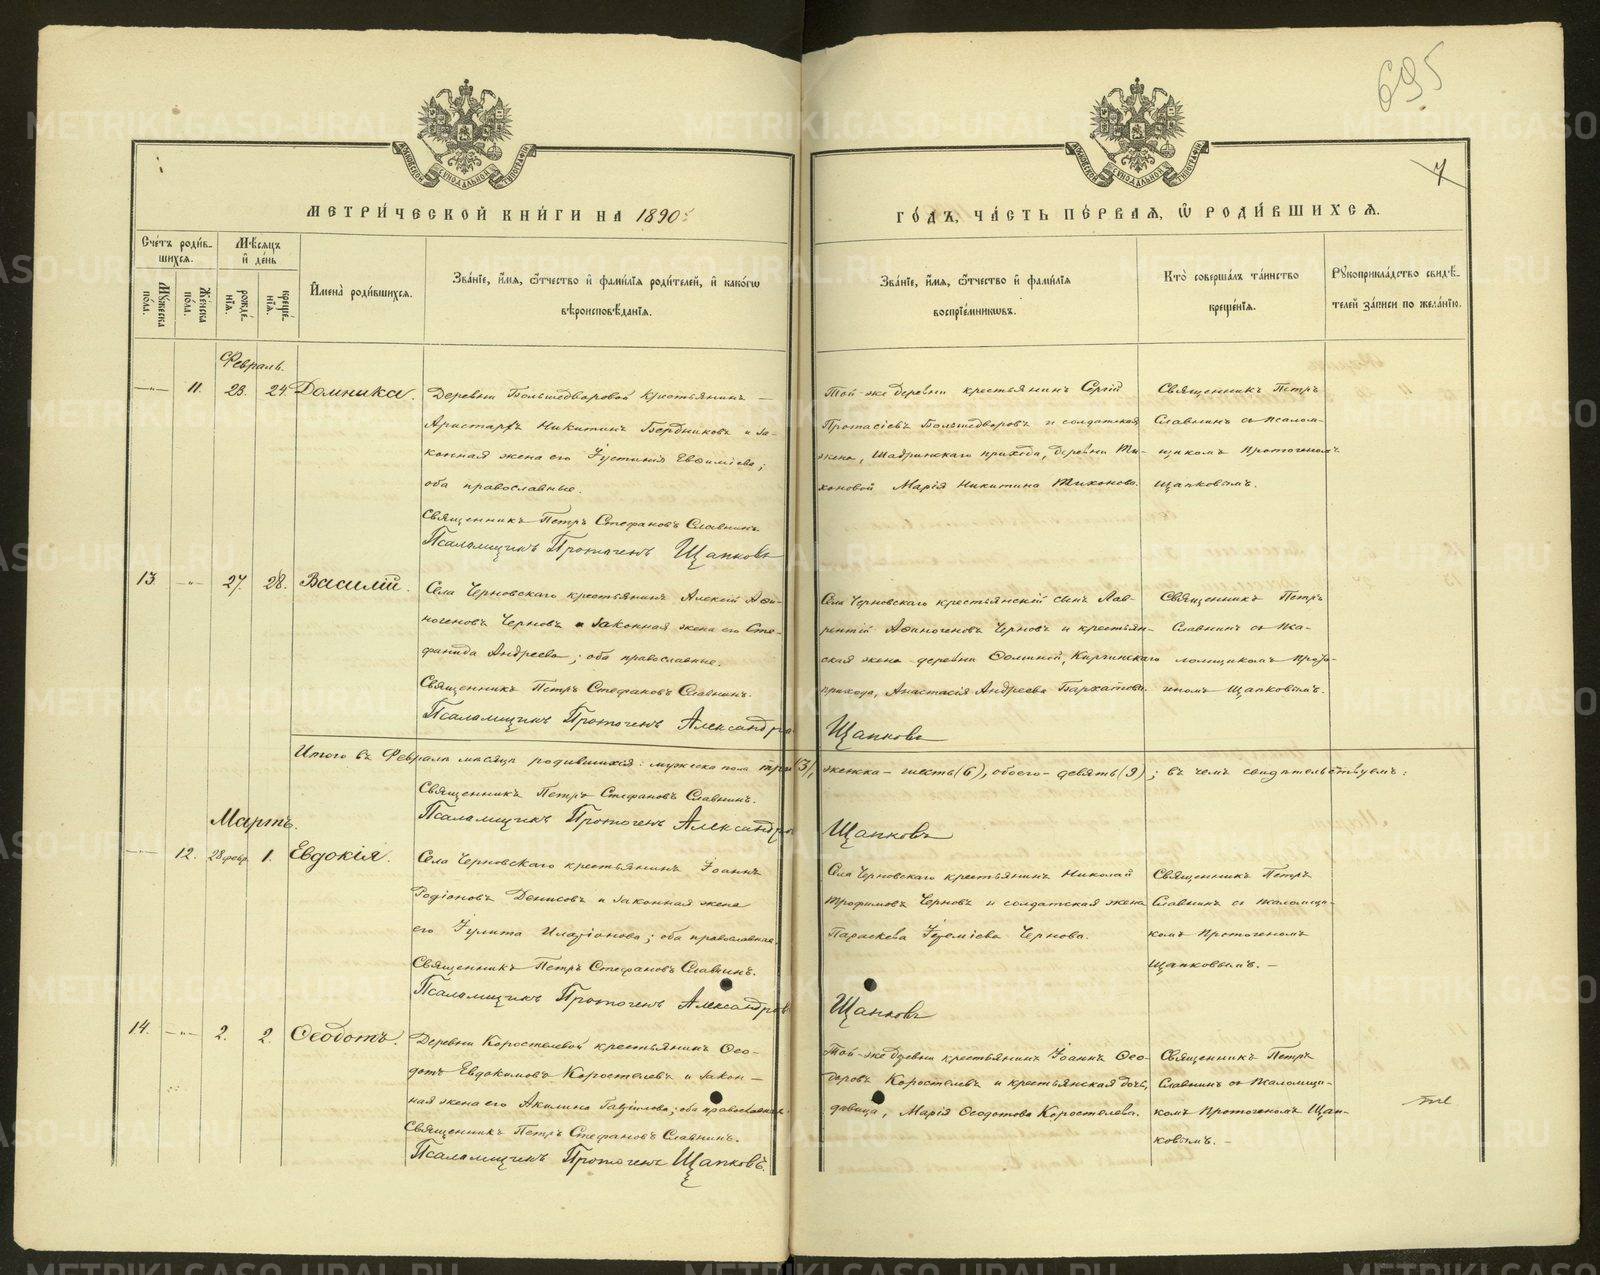 695
7
МЕТРИ́ЧЕСКОЙ КНИ́ГИ НА 1890 г.
ГО́ДЪ, ЧА́СТЬ ПЕ́РВАЯ, Ѿ РОДИ́ВШИХСѦ.
Сче́тъ роди́в-
шихсѧ.
Мѣ́сѧцъ
и҆ де́нь
Му́жеска
по́ла.
Же́нска
по́ла.
рожде́-
нїѧ.
креще́-
нїѧ.
И҆мена̀ роди́вшихсѧ.
Зва́нїе, и҆́мѧ, ѻ҆́тчество и҆ фами́лїѧ роди́телей, и҆ како́гѡ
вѣроисповѣ́данїѧ.
Зва́нїе, и҆́мѧ, ѻ҆́тчество и҆ фами́лїѧ
воспрїе́мникѡвъ.
Кто̀ соверша́лъ та́инство
креще́нїѧ.
Рꙋкоприкла́дство свидѣ́-
телей за́писи по жела́нїю.
Февраль.
—"— 11. 23. 24. Домника.
Деревни Большедворовой крестьянинъ —
Аристархъ Никитинъ Бердниковъ и за-
конная жена его Іустинія Евѳиміева;
оба православные.
Священникъ Петръ Стефановъ Славнинъ.
Псаломщикъ Протогенъ Щапковъ
Той-же деревни крестьянинъ Сергій
Протасіевъ Большедворовъ и солдатская
жена, Шадринскаго прихода, деревни Ти-
хоновой Марія Никитина Тихонова.
Священникъ Петръ
Славнинъ съ псалом-
щикомъ Протогеномъ
Щапковымъ.
13. —"— 27. 28. Василій.
Села Черновскаго крестьянинъ Алексій Аѳи-
ногеновъ Черновъ и законная жена его Сте-
фанида Андреева; оба православные.
Священникъ Петръ Стефановъ Славнинъ.
Псаломщикъ Протогенъ Александровъ
Щапковъ
Села Черновскаго крестьянскій сынъ Лав-
рентій Аѳиногеновъ Черновъ и крестьян-
ская жена деревни Ѳоминой, Киргинскаго
прихода, Анастасія Андреева Бархатова.
Священникъ Петръ
Славнинъ съ пса-
ломщикомъ Прото-
геномъ Щапковымъ.
Итого въ Февралѣ мѣсяцѣ родившихся: мужеска пола три (3), женска – шесть (6), обоего – девять (9); въ чемъ свидѣтельствуемъ:
Священникъ Петръ Стефановъ Славнинъ.
Псаломщикъ Протогенъ Александровъ
Щапковъ
Мартъ.
—"— 12. 28 февр. 1. Евдокія.
Села Черновскаго крестьянинъ Іоаннъ
Родіоновъ Денисовъ и законная жена
его Іулита Иларіонова; оба православные.
Священникъ Петръ Стефановъ Славнинъ.
Псаломщикъ Протогенъ Александровъ
Щапковъ
Села Черновскаго крестьянинъ Николай
Трофимовъ Черновъ и солдатская жена
Параскева Іереміева Чернова.
Священникъ Петръ
Славнинъ съ псаломщи-
комъ Протогеномъ
Щапковымъ. –
14. —"— 2. 2. Ѳеодотъ.
Деревни Коростелевой крестьянинъ Ѳео-
дотъ Евдокимовъ Коростелевъ и закон-
ная жена его Акилина Гавріилова; оба православные.
Священникъ Петръ Стефановъ Славнинъ.
Псаломщикъ Протогенъ Щапковъ.
Той-же деревни крестьянинъ Іоаннъ Ѳео-
доровъ Коростелевъ и крестьянская дочь,
дѣвица, Марія Ѳеодотова Коростелева.
Священникъ Петръ
Славнинъ съ псаломщи-
комъ Протогеномъ Щап-
ковымъ. –
METRIKI.GASO-URAL.RU